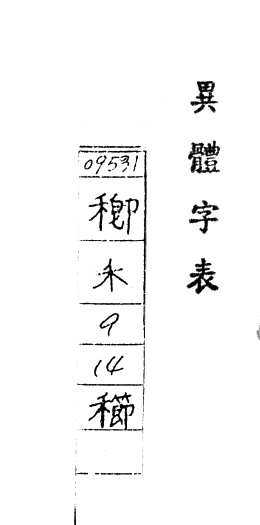 異體字表
09531
禾
9
14